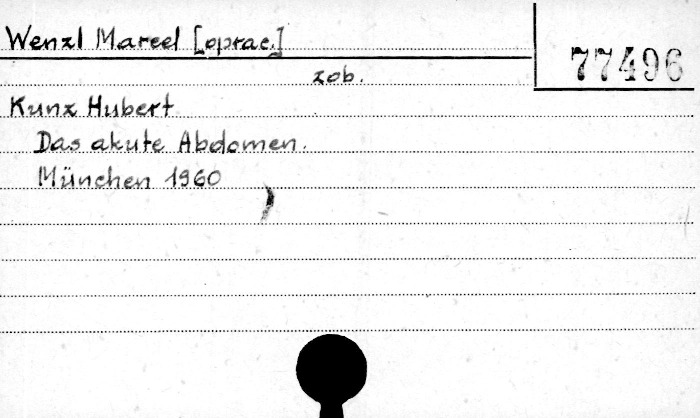 Wenzl Marcel [oprac.]
77496
zob.
Kunz Hubert
Das akute Abdomen.
München 1960